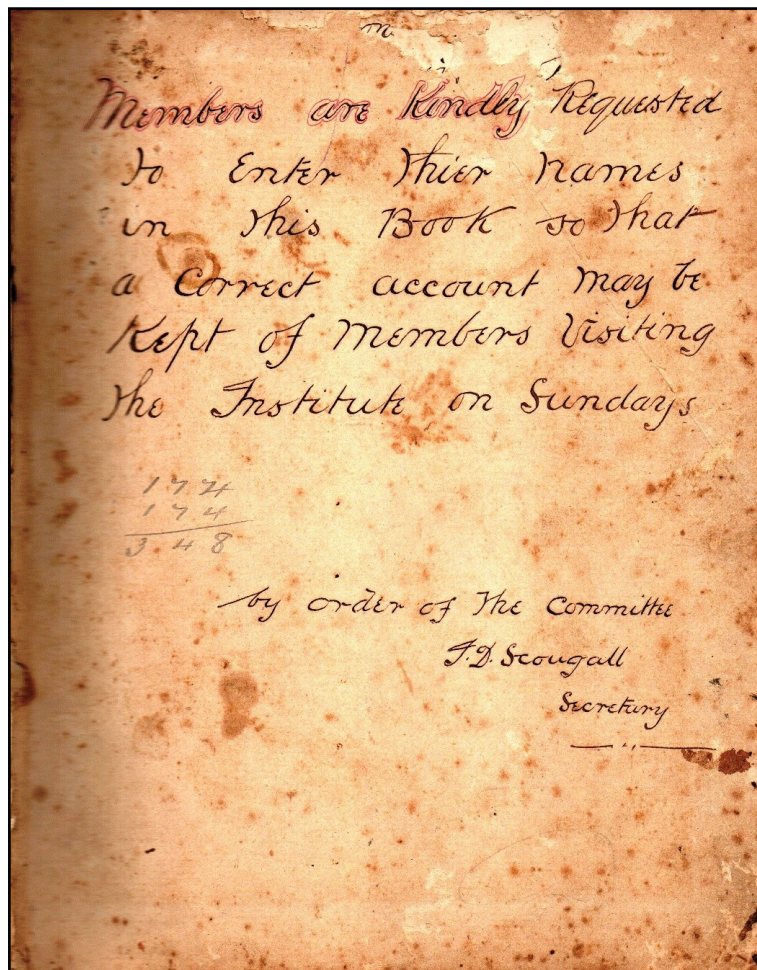 m
Members are Kindly Requested
to Enter thier names
in this Book so that
a correct account may be
Kept of Members Visiting
the Institute on Sundays
174
174
348
by order of the Committee
J.D. Scougall
Secretary